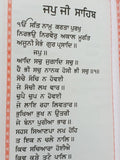 ਜਪੁ ਜੀ ਸਾਹਿਬ
ੴ ਸਤਿ ਨਾਮੁ ਕਰਤਾ ਪੁਰਖੁ
ਨਿਰਭਉ ਨਿਰਵੈਰੁ ਅਕਾਲ ਮੂਰਤਿ
ਅਜੂਨੀ ਸੈਭੰ ਗੁਰ ਪ੍ਰਸਾਦਿ॥
॥ਜਪੁ॥
ਆਦਿ ਸਚੁ ਜੁਗਾਦਿ ਸਚੁ॥
ਹੈ ਭੀ ਸਚੁ ਨਾਨਕ ਹੋਸੀ ਭੀ ਸਚੁ॥
ਸੋਚੈ ਸੋਚਿ ਨ ਹੋਵਈ
ਜੇ ਸੋਚੀ ਲਖ ਵਾਰ॥
ਚੁਪੈ ਚੁਪ ਨ ਹੋਵਈ
ਜੇ ਲਾਇ ਰਹਾ ਲਿਵਤਾਰ॥
ਭੁਖਿਆ ਭੁਖ ਨ ਉਤਰੀ
ਜੇ ਬੰਨਾ ਪੁਰੀਆ ਭਾਰ॥
ਸਹਸ ਸਿਆਣਪਾ ਲਖ ਹੋਹਿ
ਤ ਇਕ ਨ ਚਲੈ ਨਾਲਿ॥